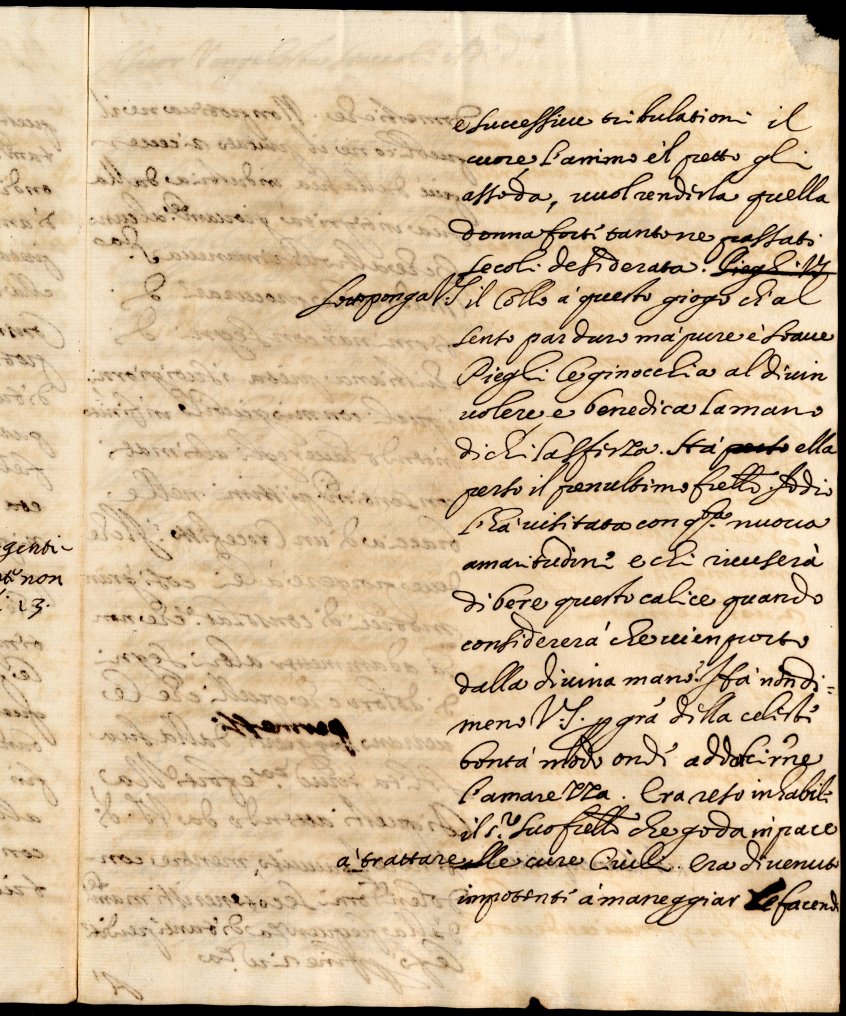 e successive tribulationi il
cuore l'animo e'l petto gli
assoda, vuol renderla quella
donna forte tanto ne passati
secoli desiderata. Pieghi V.S.
Sottoponga V.S. il Collo à questo giogo ch'al
sento par duro mà pure è soave
Pieghi le ginocchia al divin
volere, e benedica la mano
di chi l'afferza. Hà perso ella
perso il penultimo frello. Iddio
l'hà visitata con qsta nuova
amaritudine e chi ricuserà
di bere questo calice quando
considererà che vien porto
dalla divina mano? Hà nondi=
meno V.S. p grã della celeste
bontà modo onde addolcirne
l'amarezza. Era reso inhabile
il s.r suo frello che goda in pace
à trattare le cure Civili. era divenuto
impotente à maneggiar le facende
genti-
non
13.